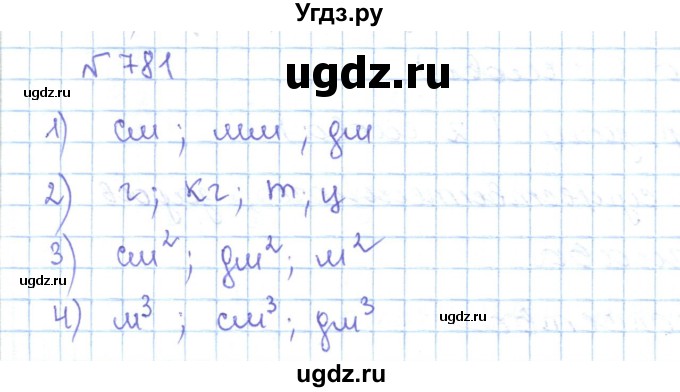 Угдз.ру
№ 781
ugdz.ru
ugdz.ru
1) см ; мм ; дм
ugdz.ru
2) г ; кг ; т ; ц
3) см² ; дм² ; м²
ugdz.ru
4) м³ ; см³ ; дм³
ugdz.ru
ugdz.ru